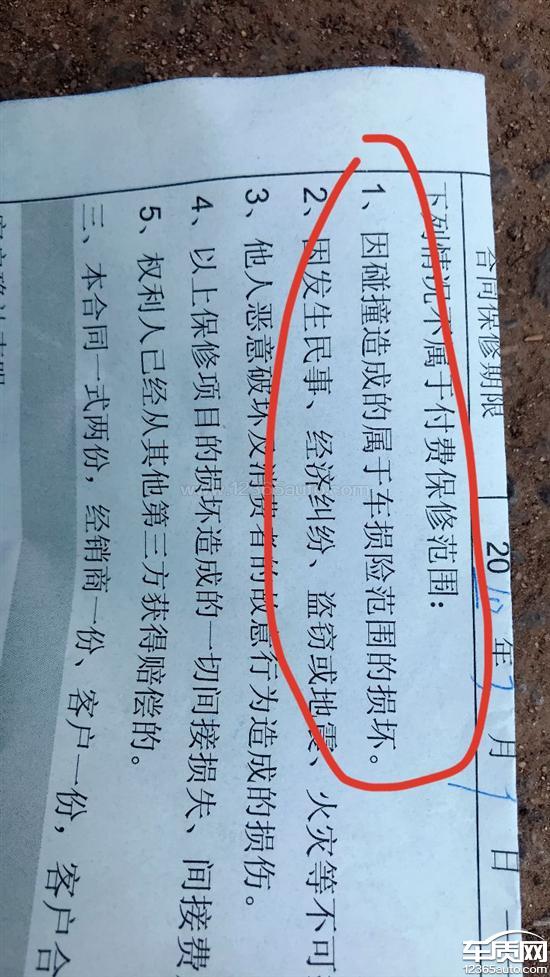 合同保修期限 20 年 月 日
下列情况不属于付费保修范围：
1、因碰撞造成的属于车损险范围的损坏。
2、因发生民事、经济纠纷、盗窃或地震、火灾等不可
3、他人恶意破坏及消费者的故意行为造成的损伤。
4、以上保修项目的损坏造成的一切间接损失、间接费
5、权利人已经从其他第三方获得赔偿的。
三、本合同一式两份，经销商一份、客户一份，客户合
www.12365auto.com
车质网
12365auto.com